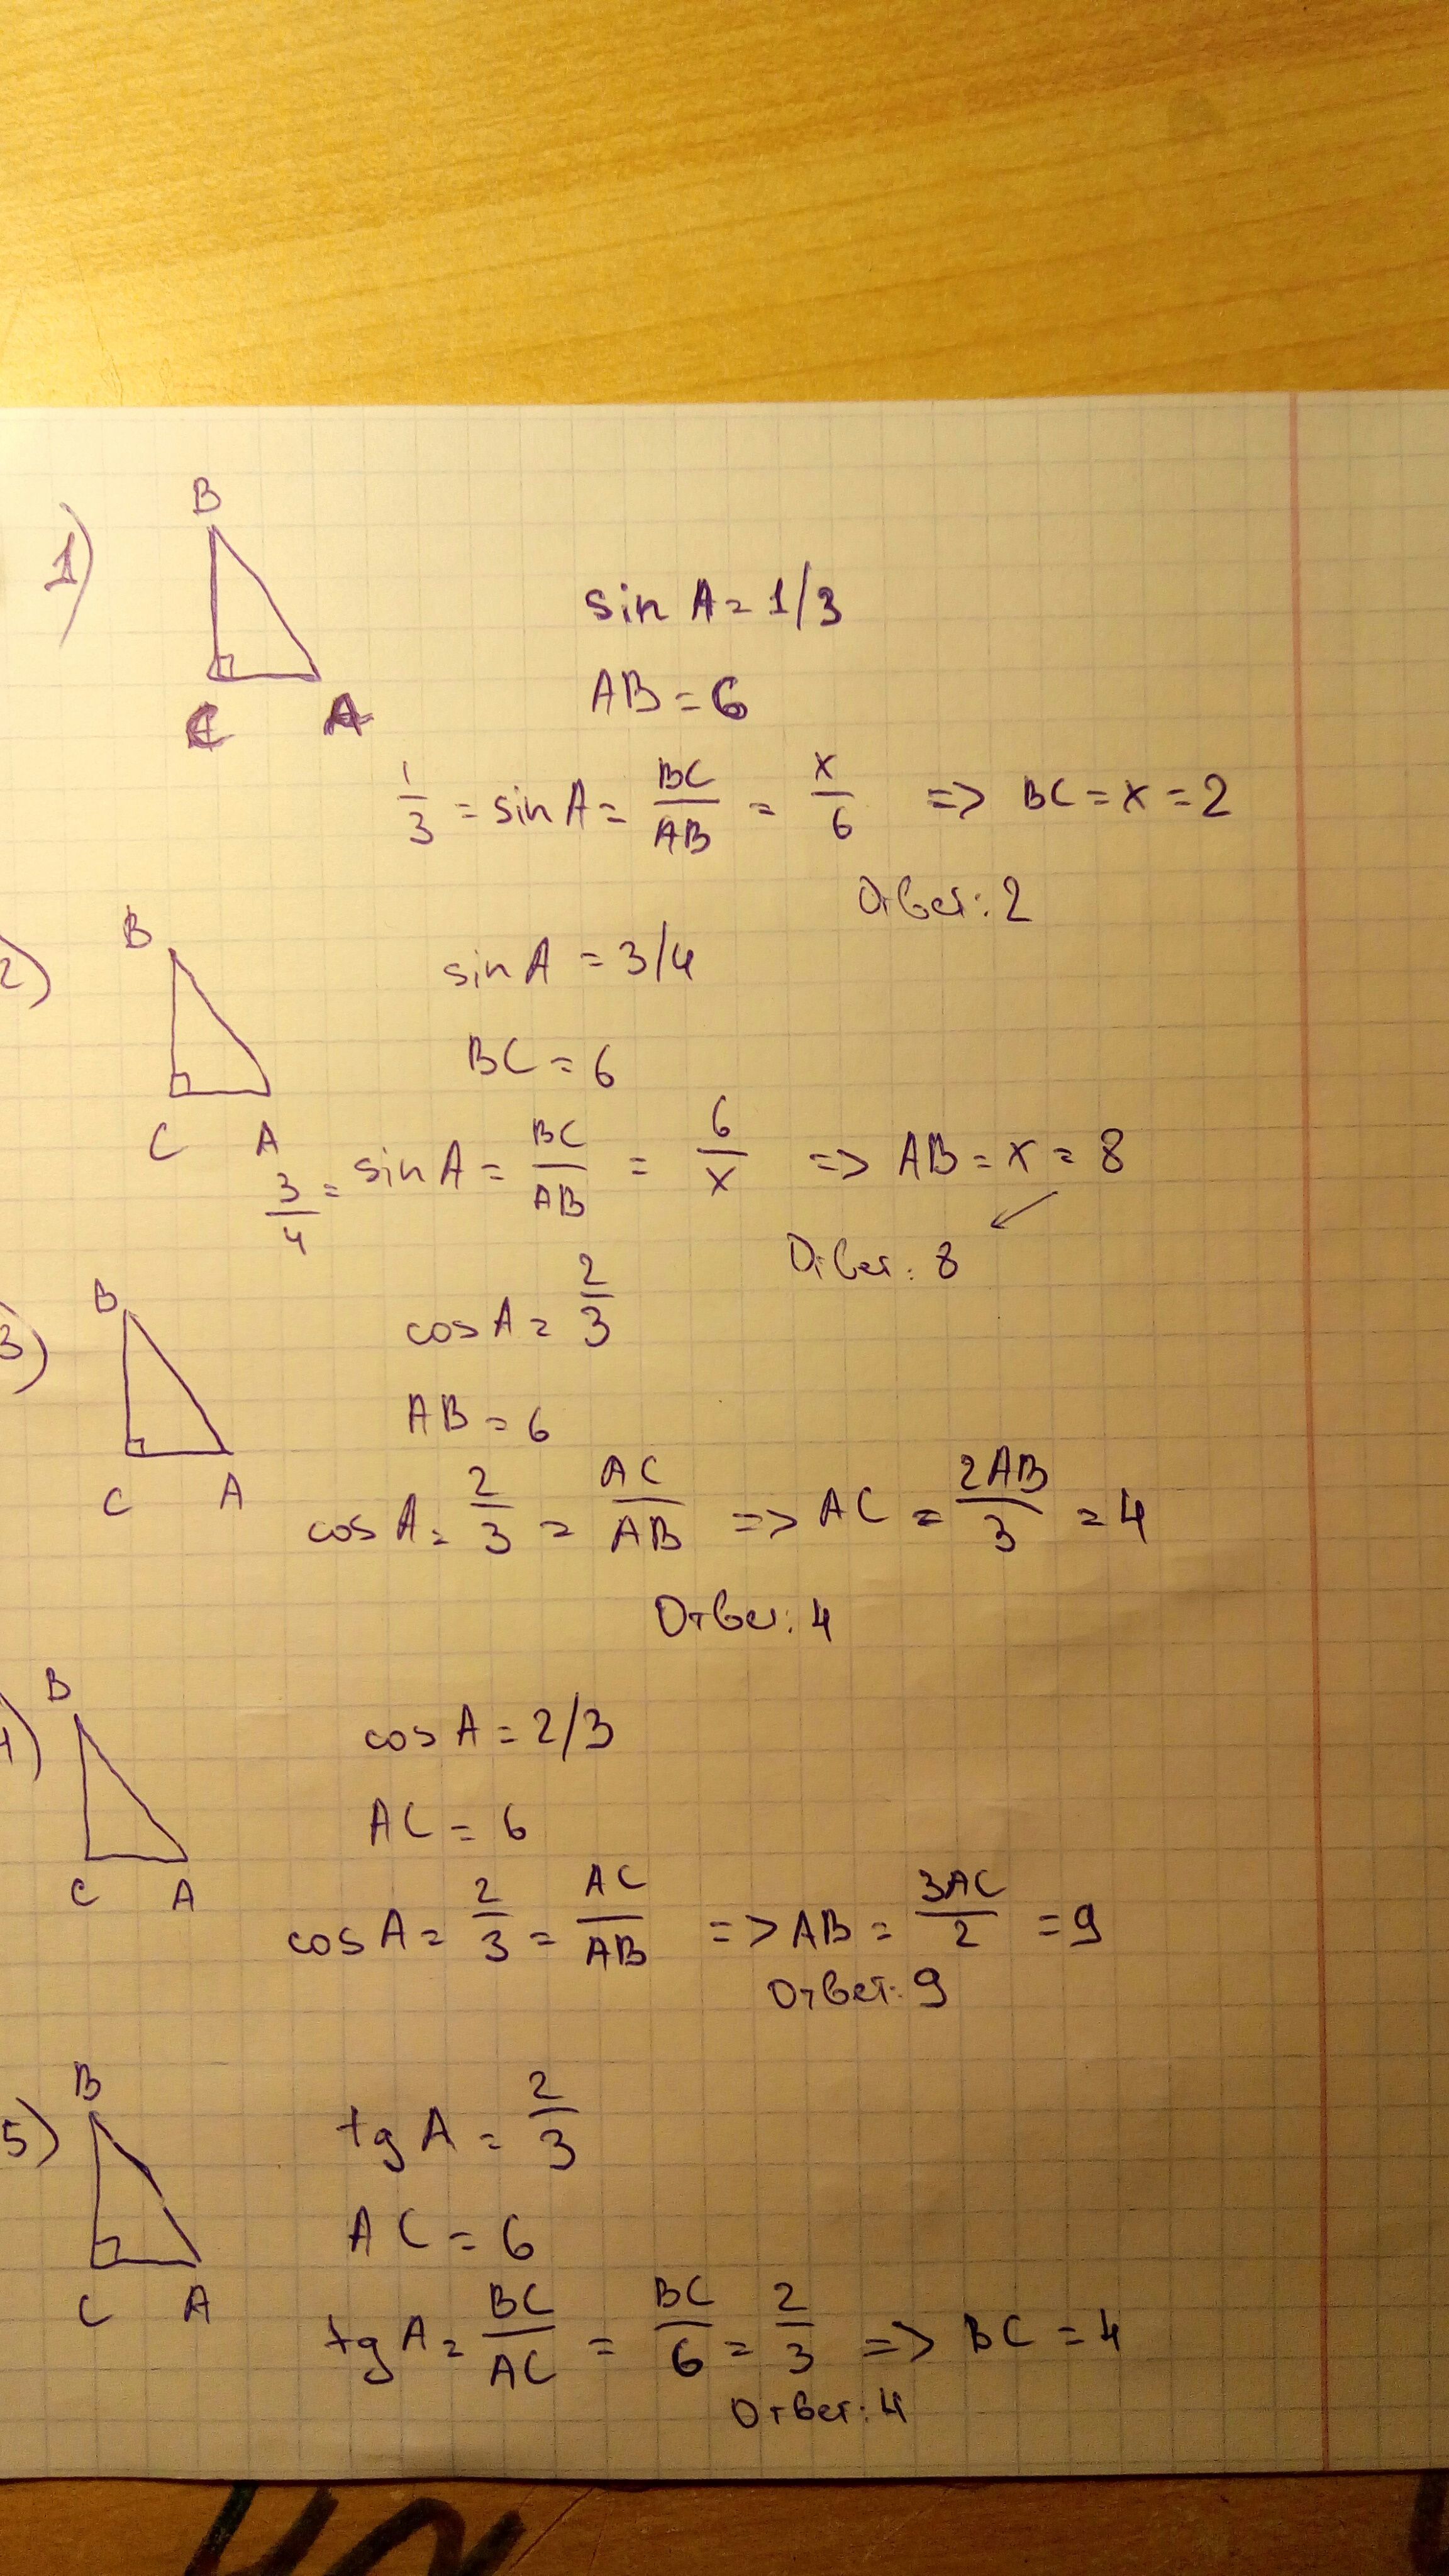 1)
B
C A
sin A = 1/3
AB = 6
1/3 = sin A = BC/AB = x/6 => BC = x = 2
Ответ: 2
2)
B
C A
sin A = 3/4
BC = 6
3/4 = sin A = BC/AB = 6/x => AB = x = 8
Ответ: 8
3)
B
C A
cos A = 2/3
AB = 6
cos A = 2/3 = AC/AB => AC = 2AB/3 = 4
Ответ: 4
4)
B
C A
cos A = 2/3
AC = 6
cos A = 2/3 = AC/AB => AB = 3AC/2 = 9
Ответ: 9
5)
B
C A
tg A = 2/3
AC = 6
tg A = BC/AC = BC/6 = 2/3 => BC = 4
Ответ: 4